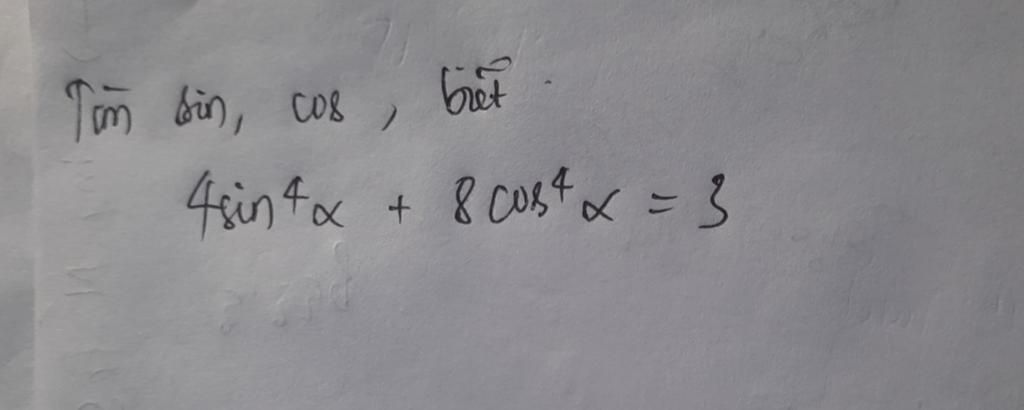 Tìm sin, cos, biết
4sin⁴α + 8cos⁴α = 3